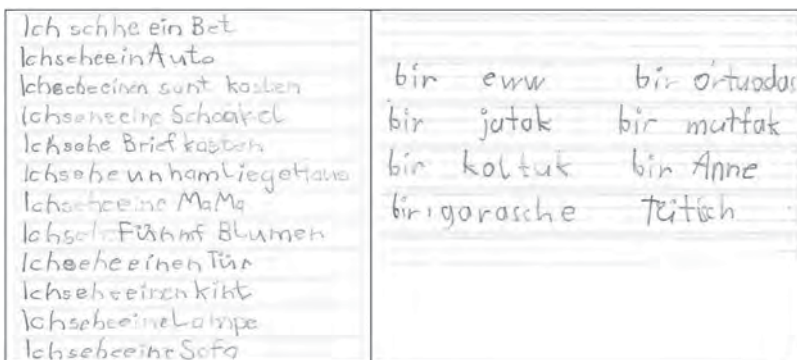 Ich schhe ein Bet
Ichseheein Auto
Ichseheeinen sant kasten
Ichseheeine Schaakel
Ichsehe Brief kasten
Ichsehe un ham Liege
Ichseheeine MaMa
Ichseh Fühmf BLumen
Ichseheeinen Tür
Ichseheeinen kint
IchseheeineLampe
IchseheeineSofa
bir eww bir ortuodas
bir jatak bir mutfak
bir koltuk bir Anne
bir garasche